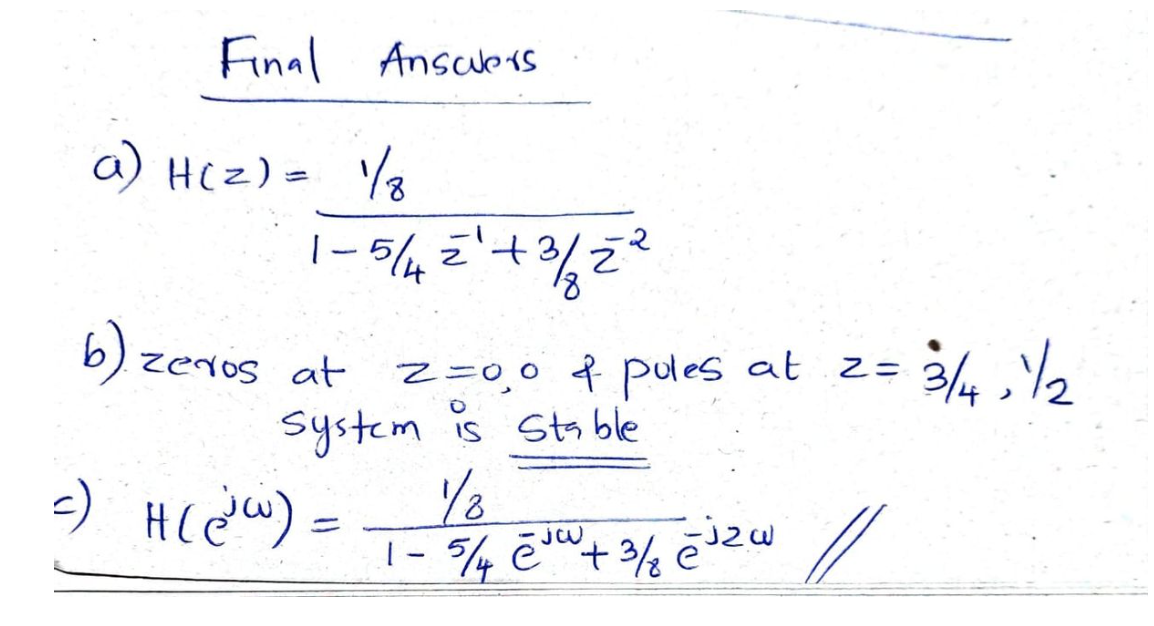 Final Answers
a) H(z) = 1/8
1 - 5/4 z^-1 + 3/8 z^-2
b) zeros at z=0,0 & poles at z= 3/4, 1/2
system is stable
c) H(e^jω) = 1/8
1 - 5/4 e^-jω + 3/8 e^-j2ω //